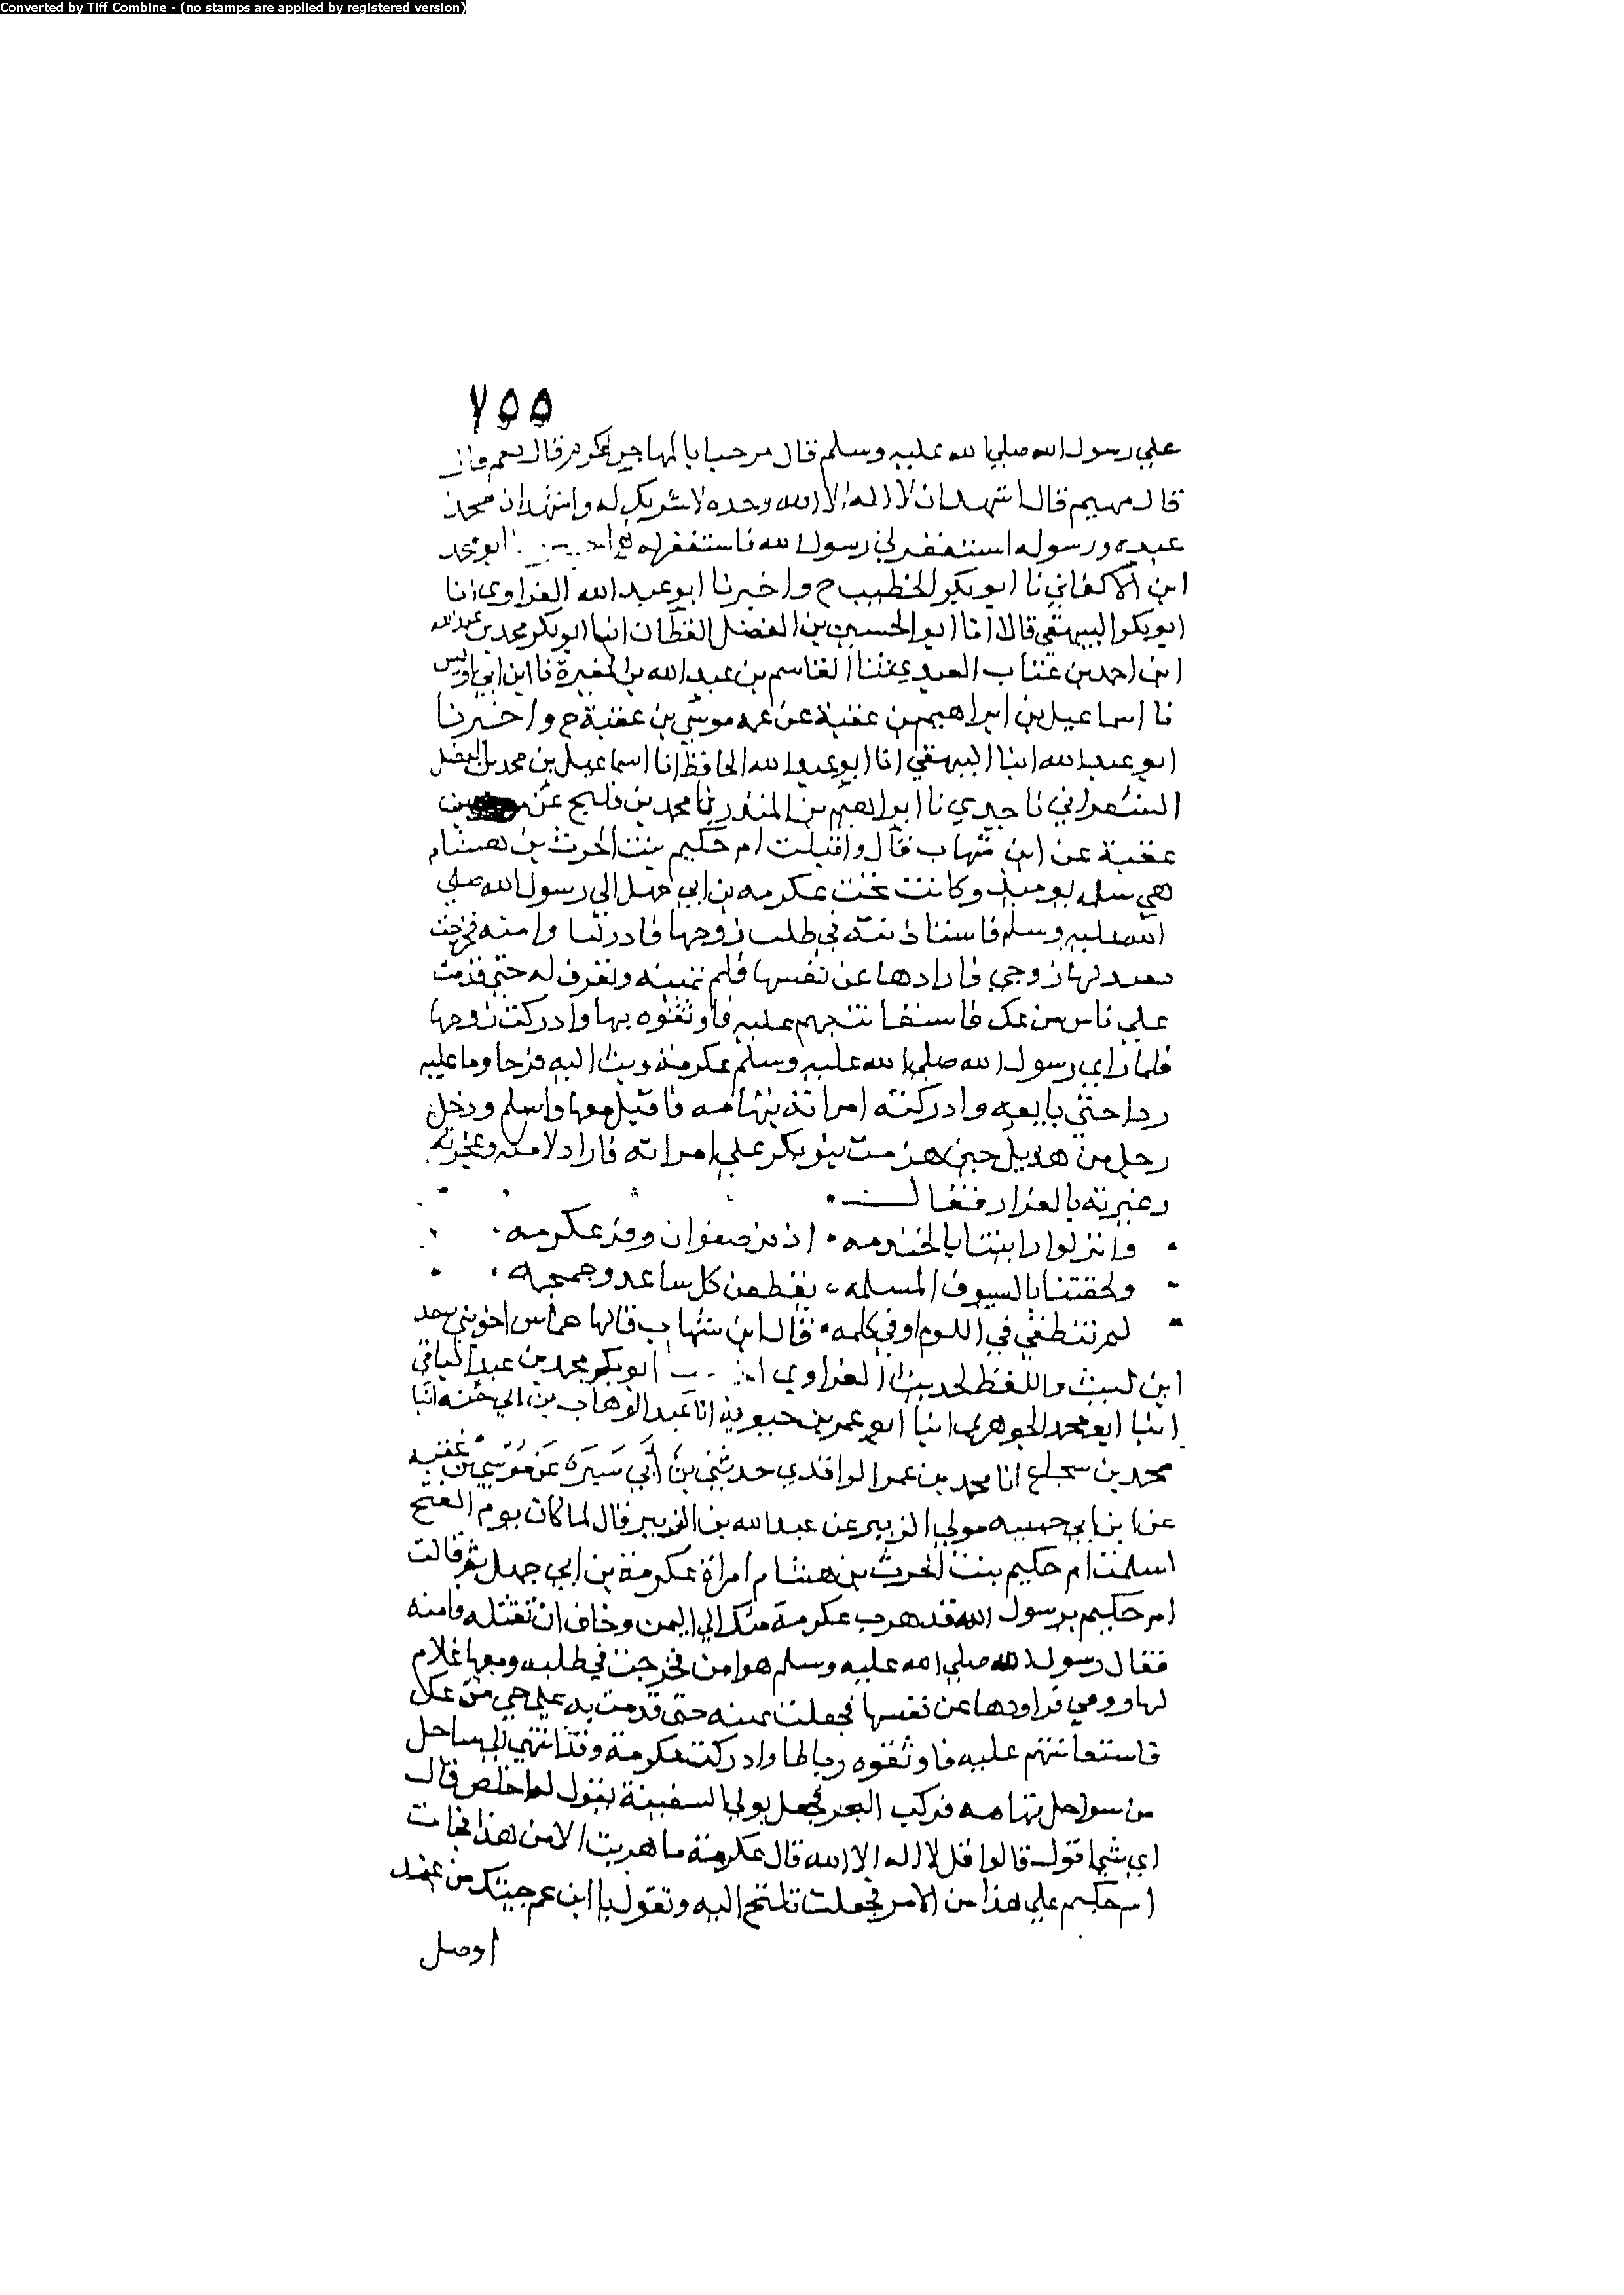 Converted by Tiff Combine - (no stamps are applied by registered version)
٧٥٥
علي رسول الله صلي الله عليه وسلم قال مرحبا بالمهاجر قال نعم
قال مهيم قال اشهد ان لا اله الا الله وحده لا شريك له واشهد ان محمد
عبده ورسوله استغفر لي رسول الله فاستغفر له ابو محمد
ابن الاكفاني نا ابو بكر الخطيب ح واخبرنا ابو عبد الله الفراوي انا
ابو بكر البيهقي قالا انا ابو الحسين بن الفضل القطان انبا ابو بكر محمد بن عبد الله
ابن احمد بن عتاب العبدي ثنا القاسم بن عبد الله بن المغيرة نا ابن ابي اويس
نا اسماعيل بن ابراهيم بن عقبة عن عمه موسي بن عقبة ح واخبرنا
ابو عبد الله انبا البيهقي انا ابو عبد الله الحافظ انا اسماعيل بن محمد بن الفضل
الشعراني نا جدي نا ابراهيم بن المنذر نا محمد بن فليح عن بن
عقبة عن ابن شهاب قال واقبلت ام حكيم بنت الحرث بن هشام
هي يوميذ وكانت تحت عكرمه بن ابي جهل الي رسول الله صلي
الله عليه وسلم فاستاذنته في طلب زوجها فاذن لها وامنه فخرجت
بعبد لها رومي فارادها عن نفسها فلم تمنيه وتقرب له حتي قدمت
علي ناس من عك فاستغاثتهم عليه فاوثقوه بها وادركت زوجها
فلما راي رسول الله صلي الله عليه وسلم عكرمة وثب اليه فرحا وما عليه
ردا حتي بايعه وادركته امراته بتهامه فاقبل معها واسلم ودخل
رجل من هذيل حين هزمت بنو بكر علي امراته فارادلامته وعجزته
وعيرته بالفرار فقال
وانتزلوا رايتنا بالخندمه اذ فر صفوان وفر عكرمه
ولحقتنا بالسيوف المسلمه يقطعن كل ساعد وجمجمه
لم تنطقي في اللوم اوفي كلمه قال ابن شهاب قالها حماس اخو بني سعد
ابن ليث واللفظ لحديث الفراوي ابو بكر محمد بن عبد الباقي
انبا ابو محمد الجوهري انبا ابو عمر بن حيوية انا عبد الوهاب بن ابي حية انبا
محمد بن شجاع انا محمد بن عمر الواقدي حدثني بن ابي سبرة عن موسي بن عقبه
عن ابن ابي حبيبه مولي الزبير عن عبد الله بن الزبير قال لما كان يوم الفتح
اسلمت ام حكيم بنت الحرث بن هشام امراة عكرمة بن ابي جهل ثم قالت
ام حكيم يرسول الله قد هرب عكرمة منك الي اليمن وخاف ان تقتله فامنه
فقال رسول الله صلي الله عليه وسلم هو امن فخرجت في طلبه ومعها غلام
لها رومي فراودها عن نفسها فجعلت تمنيه حتي قدمت به علي حي من عك
فاستعانتهم عليه فاوثقوه رباطا وادركت عكرمة وقد انتهي الي ساحل
من سواحل تهامه فركب البحر فجعل يولي السفينة يقول له اخلص قال
اي شيا قول قالوا قل لا اله الا الله قال عكرمة ما هربت الا من هذا فجات
ام حكيم علي هذا من الامر فجعلت تلتح اليه وتقول يا ابن عم جيتك من عند
اوصل